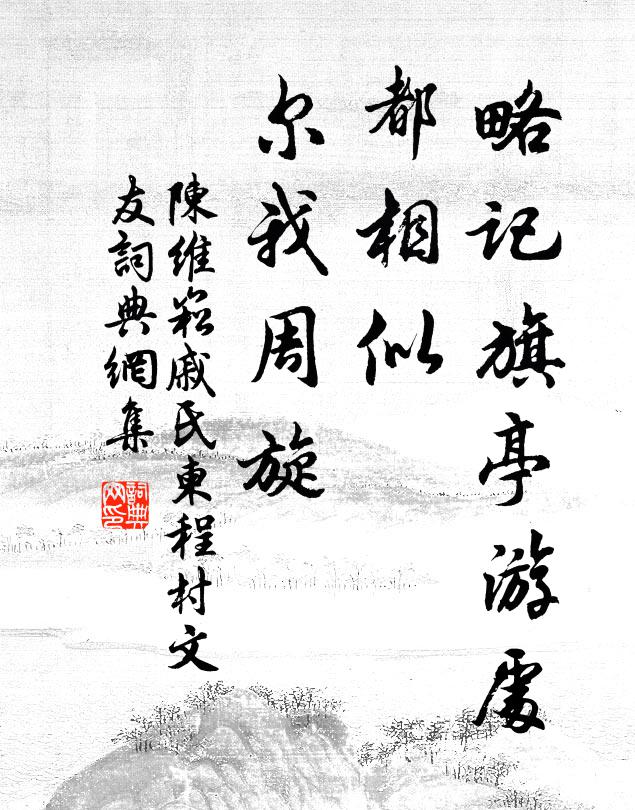 略记旗亭游处
都相似
尔我周旋
陳維崧戚氏東程村文
友詞典網集
詞典
网印